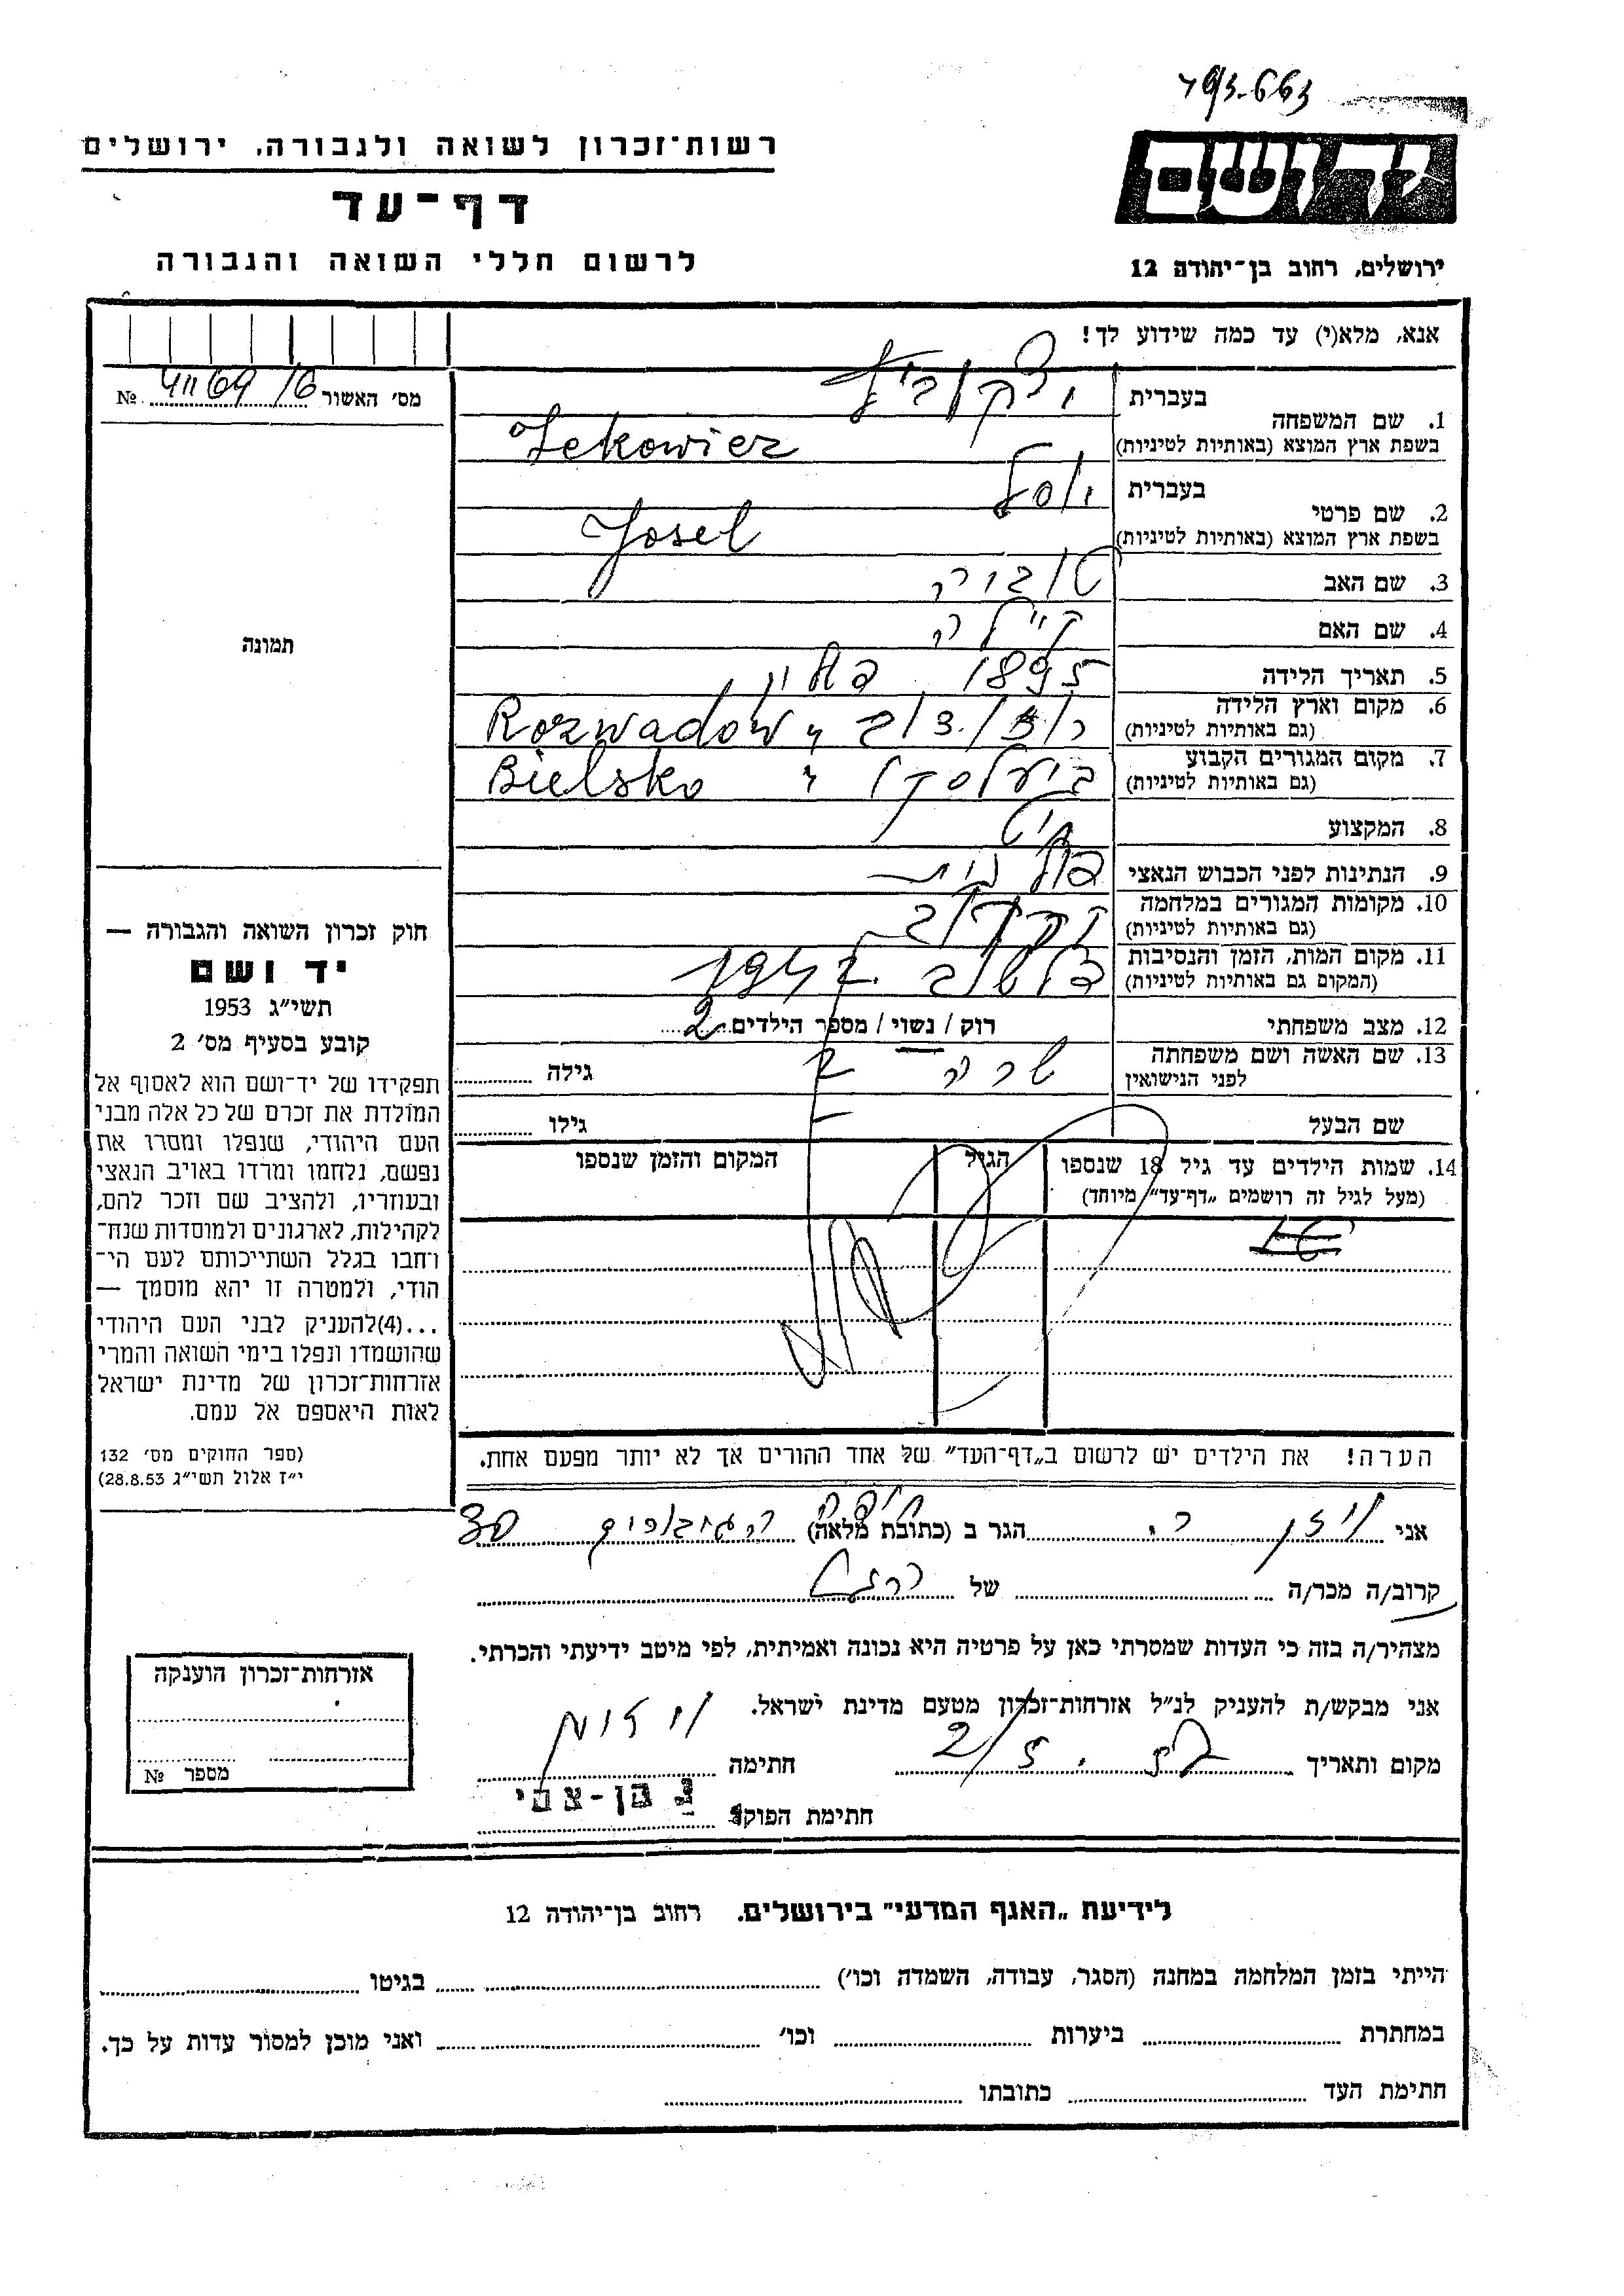 793.663
רשות־זכרון לשואה ולגבורה, ירושלים
יד ושם
דף־עד
לרשום חללי השואה והגבורה
ירושלים, רחוב בן־יהודה 12
אנא, מלא(י) עד כמה שידוע לך!
מס׳ האשור 411169/6 №
תמונה
1. שם המשפחה
בעברית
בשפת ארץ המוצא (באותיות לטיניות) Iekowicz
2. שם פרטי
בעברית יוסל
בשפת ארץ המוצא (באותיות לטיניות) Josel
3. שם האב טוביה
4. שם האם
5. תאריך הלידה 1895 פולין
6. מקום וארץ הלידה
(גם באותיות לטיניות) Rozwadów
7. מקום המגורים הקבוע
(גם באותיות לטיניות) ביעלסקו Bielsko
8. המקצוע
9. הנתינות לפני הכבוש הנאצי פולנית
10. מקומות המגורים במלחמה
(גם באותיות לטיניות)
11. מקום המות, הזמן והנסיבות
(המקום גם באותיות לטיניות)
12. מצב משפחתי רוק / נשוי / מספר הילדים 2
13. שם האשה ושם משפחתה
לפני הנישואין שרה גילה
שם הבעל גילו
14. שמות הילדים עד גיל 18 שנספו
(מעל לגיל זה רושמים „דף־עד״ מיוחד)
הגיל
המקום והזמן שנספו
הערה! את הילדים יש לרשום ב„דף־העד״ של אחד ההורים אך לא יותר מפעם אחת.
חוק זכרון השואה והגבורה —
יד ושם
תשי״ג 1953
קובע בסעיף מס׳ 2
תפקידו של יד־ושם הוא לאסוף אל
המולדת את זכרם של כל אלה מבני
העם היהודי, שנפלו ומסרו את
נפשם, נלחמו ומרדו באויב הנאצי
ובעוזריו, ולהציב שם וזכר להם,
לקהילות, לארגונים ולמוסדות שנח־
רחבו בגלל השתייכותם לעם הי־
הודי, ולמטרה זו יהא מוסמך —
...(4)להעניק לבני העם היהודי
שהושמדו ונפלו בימי השואה והמרי
אזרחות־זכרון של מדינת ישראל
לאות היאספם אל עמם.
(ספר החוקים מס׳ 132
י״ז אלול תשי״ג 28.8.53)
אני הגר ב (כתובת מלאה) חיפה 30
קרוב/ה מכר/ה של
מצהיר/ה בזה כי העדות שמסרתי כאן על פרטיה היא נכונה ואמיתית, לפי מיטב ידיעתי והכרתי.
אני מבקש/ת להעניק לנ״ל אזרחות־זכרון מטעם מדינת ישראל.
מקום ותאריך חתימה
חתימת הפוקד ג בן-צבי
אזרחות־זכרון הוענקה
מספר №
לידיעת „האגף המדעי״ בירושלים. רחוב בן־יהודה 12
הייתי בזמן המלחמה במחנה (הסגר, עבודה, השמדה וכו׳) בגיטו
במחתרת ביערות וכו׳ ואני מוכן למסור עדות על כך.
חתימת העד כתובתו